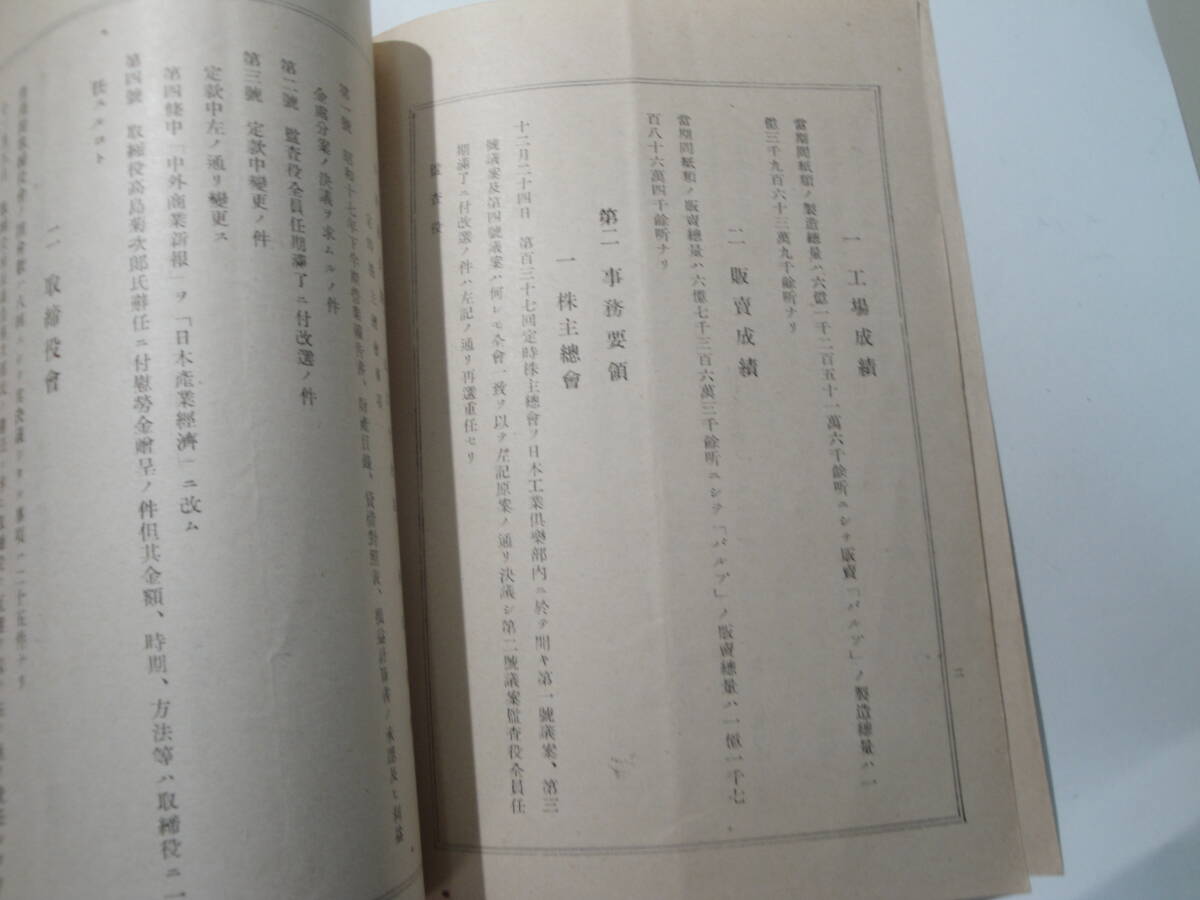 一 工場成績
當期間紙類ノ製造總量ハ六億一千二百五十一萬六千餘听ニシテ販賣「パルプ」ノ製造總量ハ一
億三千九百六十三萬九千餘听ナリ
二 販賣成績
當期間紙類ノ販賣總量ハ六億七千三百六萬三千餘听ニシテ「パルプ」ノ販賣總量ハ一億一千七
百八十六萬四千餘听ナリ
第二 事務要領
一 株主總會
十二月二十四日 第百三十七回定時株主總會ヲ日本工業倶樂部内ニ於テ開キ第一號議案、第三
號議案及第四號議案ハ何レモ全會一致ヲ以テ左記原案ノ通リ決議シ第二號議案監査役全員任
期滿了ニ付改選ノ件ハ左記ノ通リ再選重任セリ
監査役
二
第一號 昭和十七年下半期營業報告書、財產目錄、貸借對照表、損益計算書ノ承認及ヒ利益
金處分案ノ決議ヲ求ムルノ件
第二號 監査役全員任期滿了ニ付改選ノ件
第三號 定款中變更ノ件
定款中左ノ通リ變更ス
第四條中「中外商業新報」ヲ「日本產業經濟」ニ改ム
第四號 取締役高島菊次郎氏辭任ニ付慰勞金贈呈ノ件但其金額、時期、方法等ハ取締役ニ一
任スルコト
二 取締役會